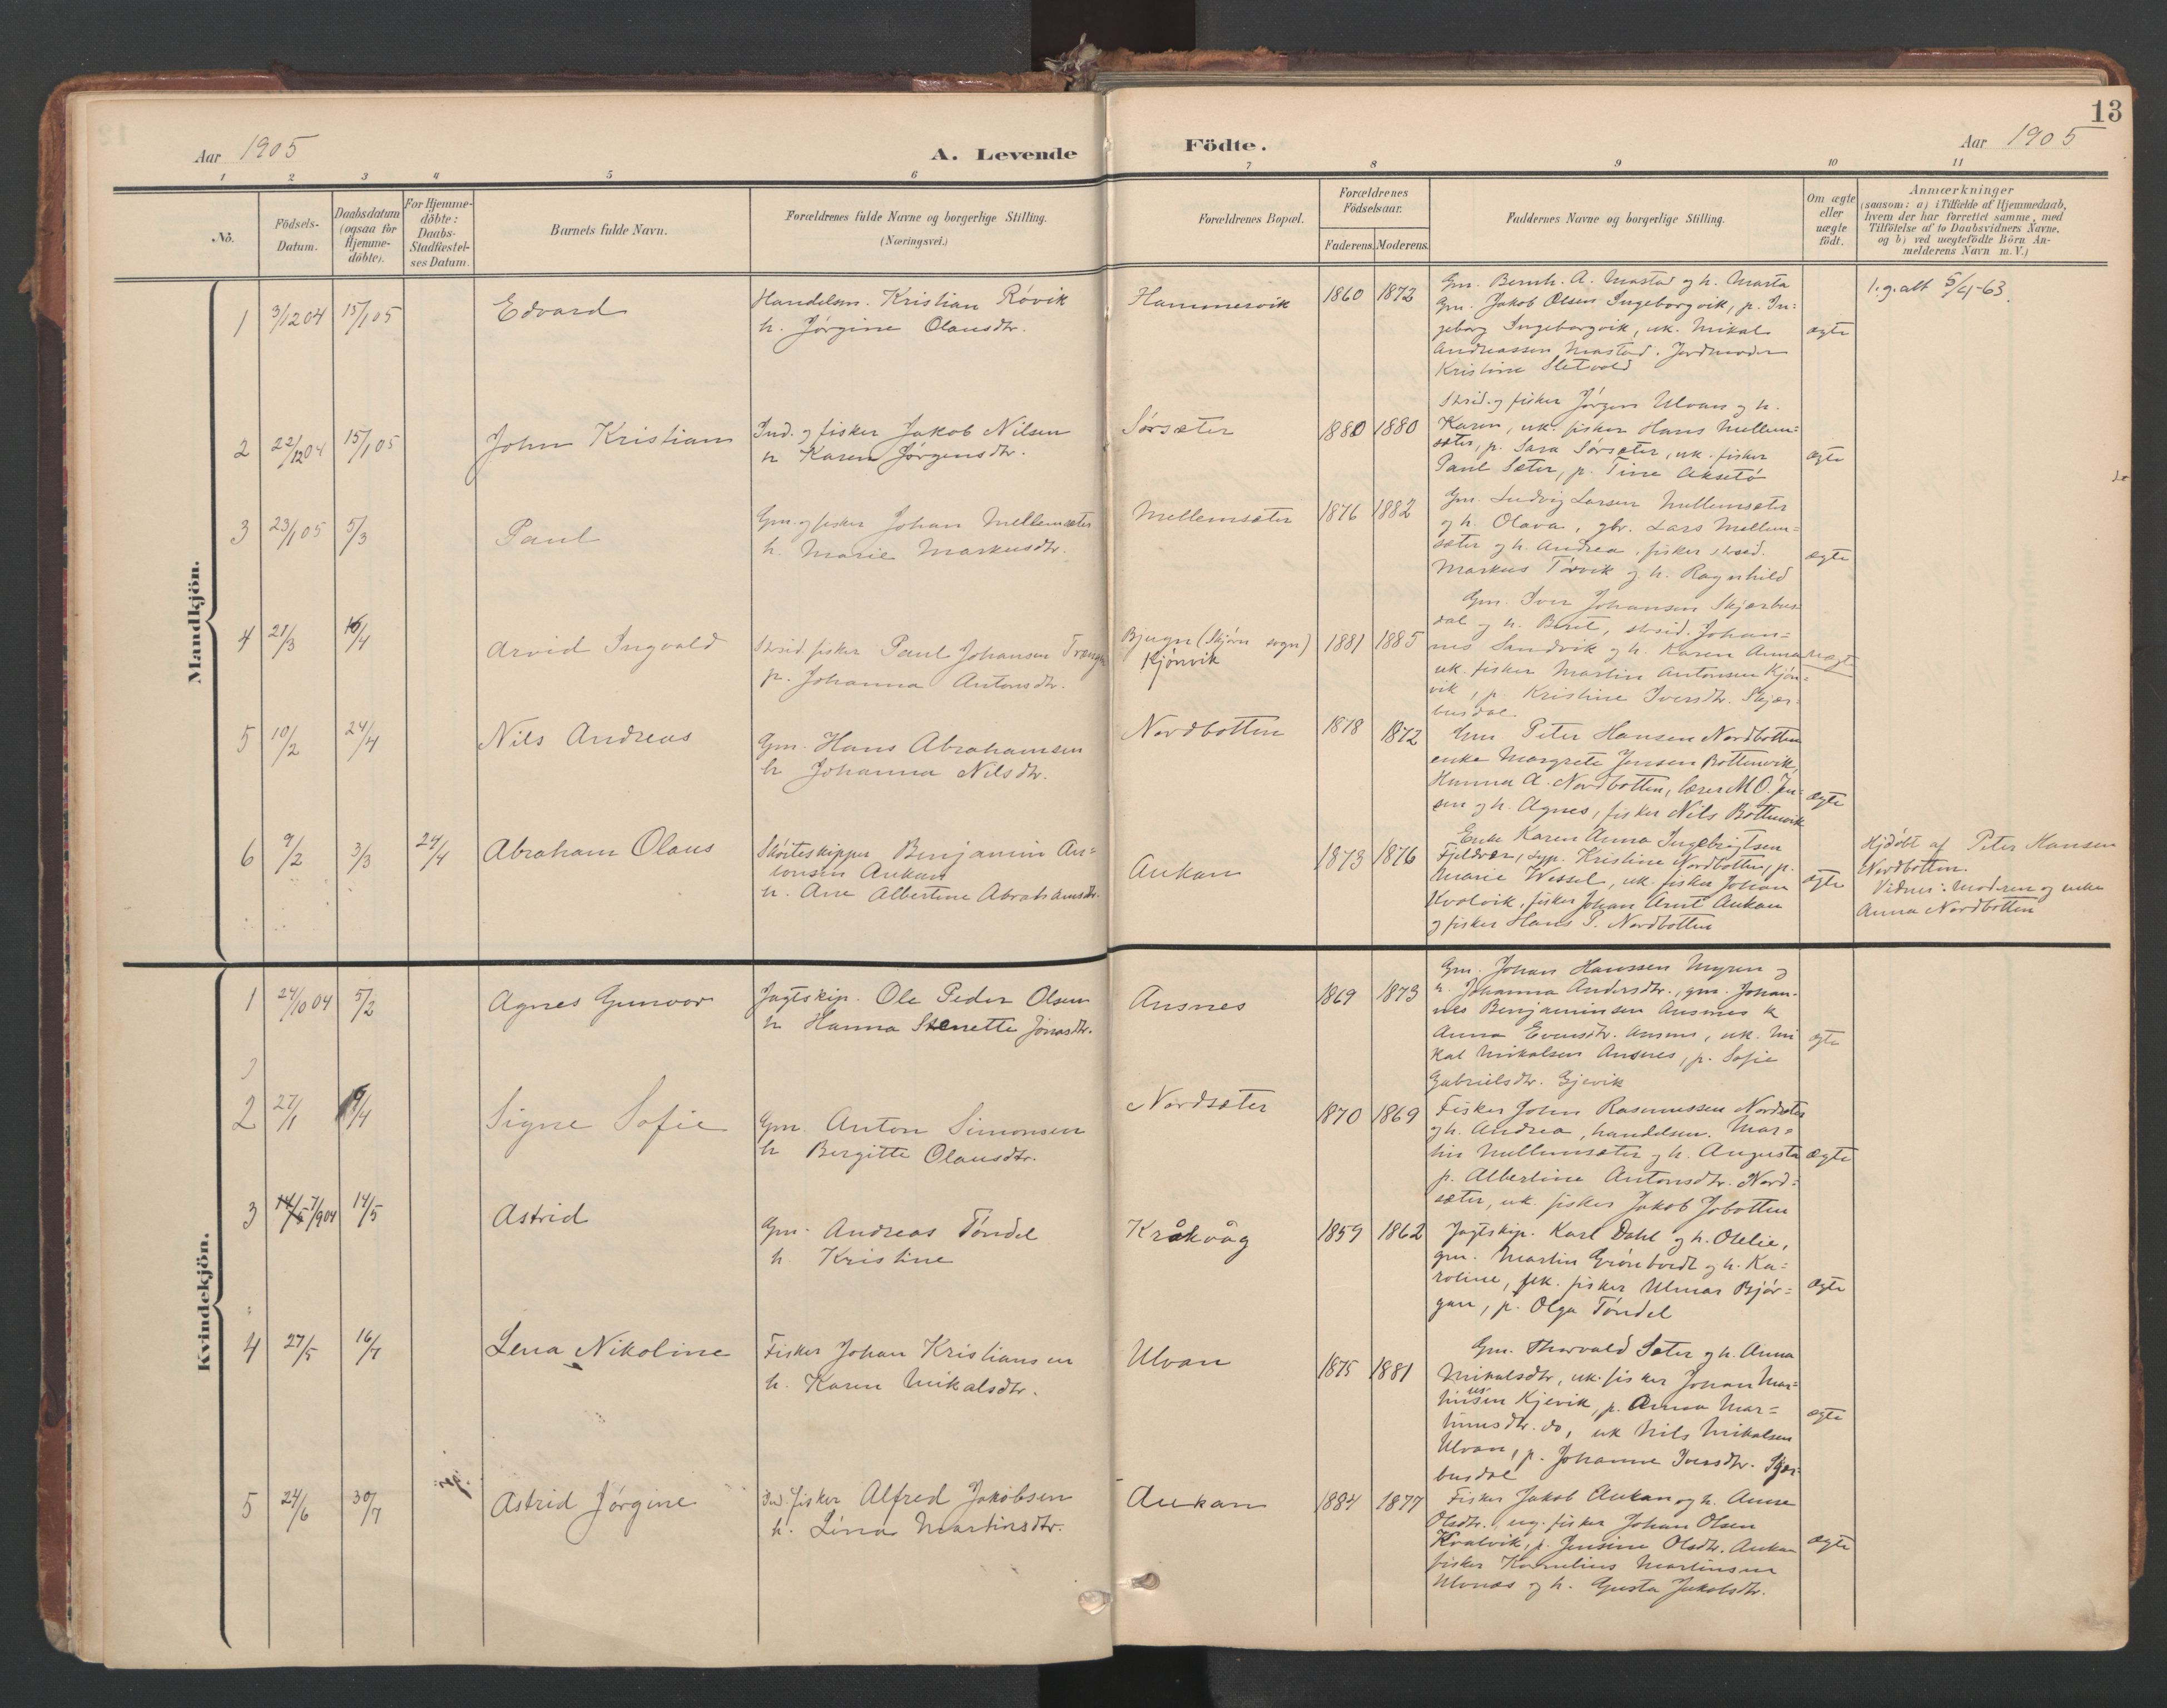 13
Aar 1905
A. Levende
Födte.
Aar 1905
1 2 3 4 5 6 7 8 9 10 11
Nô.
Födsels-
Datum.
Daabsdatum
(ogsaa for
Hjemme-
döbte).
For Hjemme-
döbte:
Daabs-
Stadfæstel-
ses Datum.
Barnets fulde Navn.
Forældrenes fulde Navne og borgerlige Stilling.
(Næringsvei.)
Forældrenes Bopæl.
Forældrenes
Födselsaar.
Faderens. Moderens.
Faddernes Navne og borgerlige Stilling.
Om ægte
eller
uægte
födt.
Anmærkninger
(saasom: a) i Tilfælde af Hjemmedaab,
hvem der har forrettet samme, med
Tilföielse af to Daabsvidners Navne,
og b) ved uægtefödte Börn An-
melderens Navn m. V.)
Mandkjön.
1 3/12 04 15/1 05 Edvard
Handelsm. Kristian Róvik
h. Jørgine Olausdtr.
Hammervik 1860 1872
Gm. Bernh. A. Mastad og h. Marta
Gm. Jakob Olsen Ingeborgvik, p. In-
geborg Ingeborgvik, uk. Mikal
Andreassen Mastad. Jordmoder
Kristine Sletvold
ægte
l.g.att 5/4-63.
2 22/12 04 15/1 05 John Kristian
Ind. og fisker Jakob Nilsen
h Karen Jørgensdtr.
Sørsæter 1880 1880
Strsid. og fisker Jørgen Ulvan og h.
Karen, uk. fisker Hans Mellem-
sæter, p. Sara Sørsæter, uk. fisker
Paul Sæter, p. Tine Aksetø
ægte
3 23/1 05 5/3 Paul
Gm. og fisker Johan Mellemsæter
h. Marie Markusdtr.
Mellemsæter 1876 1882
Gm. Ludvig Larsen Mellemsæter
og h. Olava, gbr. Lars Mellem-
sæter og h. Andrea, fisker strsid.
Markus Tørvik og h. Ragnhild
ægte
4 21/3 16/4 Arvid Ingvald
Strsid fisker Paul Johansen
p. Johanna Antonsdtr.
Bjugn (Skjørn sogn)
Kjønvik
1881 1885
Gm. Iver Johansen Skjærbus-
dal og h. Berit, strsid. Johan-
nes Sandvik og h. Karen Anna
uk. fisker Martin Antonsen Kjøn-
vik, p. Kristine Iversdtr. Skjær-
busdal
uægte
5 10/2 24/4 Nils Andreas
Gm. Hans Abrahamsen
h Johanna Nilsdtr.
Nordbotten 1878 1872
Gm Peter Hansen Nordbotten
enke Margrete Jensen Bottenvik,
Hanna A. Nordbotten, lærer M O. Jen-
sen og h. Agnes, fisker Nils Bottenvik
ægte
6 9/2 3/3 24/4 Abraham Olaus
Skøiteskipper Benjamin An-
tonsen Aukan
h. Ane Albertine Abrahamsdtr.
Aukan 1873 1876
Enke Karen Anna Ingebrigtsen
Fjeldvær, syp. Kristine Nordbotten, p.
Marie Wessel, uk. fisker Johan
Kvalvik, fisker Johan Arnt Aukan
og fisker Hans P. Nordbotten
ægte
Hjdøbt af Peter Hansen
Nordbotten.
Vidner: Moderen og enke
Anna Nordbotten
Kvindekjön.
1 24/10 04 5/2 Agnes Gunvor
Jagtskip. Ole Peder Olsen
h Hanna Stenette Jonasdtr.
Ansnes 1869 1873
Gm. Johan Hanssen Myren og
h. Johanna Andersdtr., gm. Johan-
nes Benjaminsen Ansnes h
Anna Evensdtr. Ansnes, uk. Mi
kal Mikalsen Ansnes, p. Sofie
Gabrielsdtr. Gjevik
ægte
2 27/1 /4 Signe Sofie
Gm. Anton Simonsen
h Bergitte Olausdtr.
Nordsæter 1870 1869
Fisker John Rasmussen Nordsæter
og h. Andrea, handelsm. Mar-
tin Mellemsæter og h. Augusta
p. Albertine Antonsdtr. Nord-
sæter, uk. fisker Jakob Jobotten
ægte
3 14/5 7/9 04 14/5 Astrid
Gm. Andreas Tøndel
h. Kristine
Kråkvåg 1859 1862
Jagtskip. Karl Dahl og h. Otelie,
gm. Martin Grønbordt og h. Ka-
roline, uk. fisker Ulmar Bjør-
gan, p. Olga Tøndel
ægte
4 27/5 16/7 Lena Nikoline
Fisker Johan Kristiansen
h. Karen Mikalsdtr.
Ulvan 1875 1881
Gm. Thorvald Sæter og h. Anna
Mikalsdtr, uk. fisker Johan Mar-
tinusen Kjevik, p. Anna Mar-
tinusdtr. do, uk Nils Mikalsen
Ulvan, p. Johanne Iversdtr. Skjær-
busdal
ægte
5 24/6 30/7 Astrid Jørgine
Ind. fisker Alfred Jakobsen
h. Lina Martinsdtr.
Aukan 1884 1877
Fisker Jakob Aukan og h. Anne
Olsdtr. ug. fisker Johan Olsen
Kvalvik, p. Jensine Olsdtr. Aukan
fisker Kornelius Martinsen
Ulvnæs og h. Gusta Jakobsdtr.
ægte